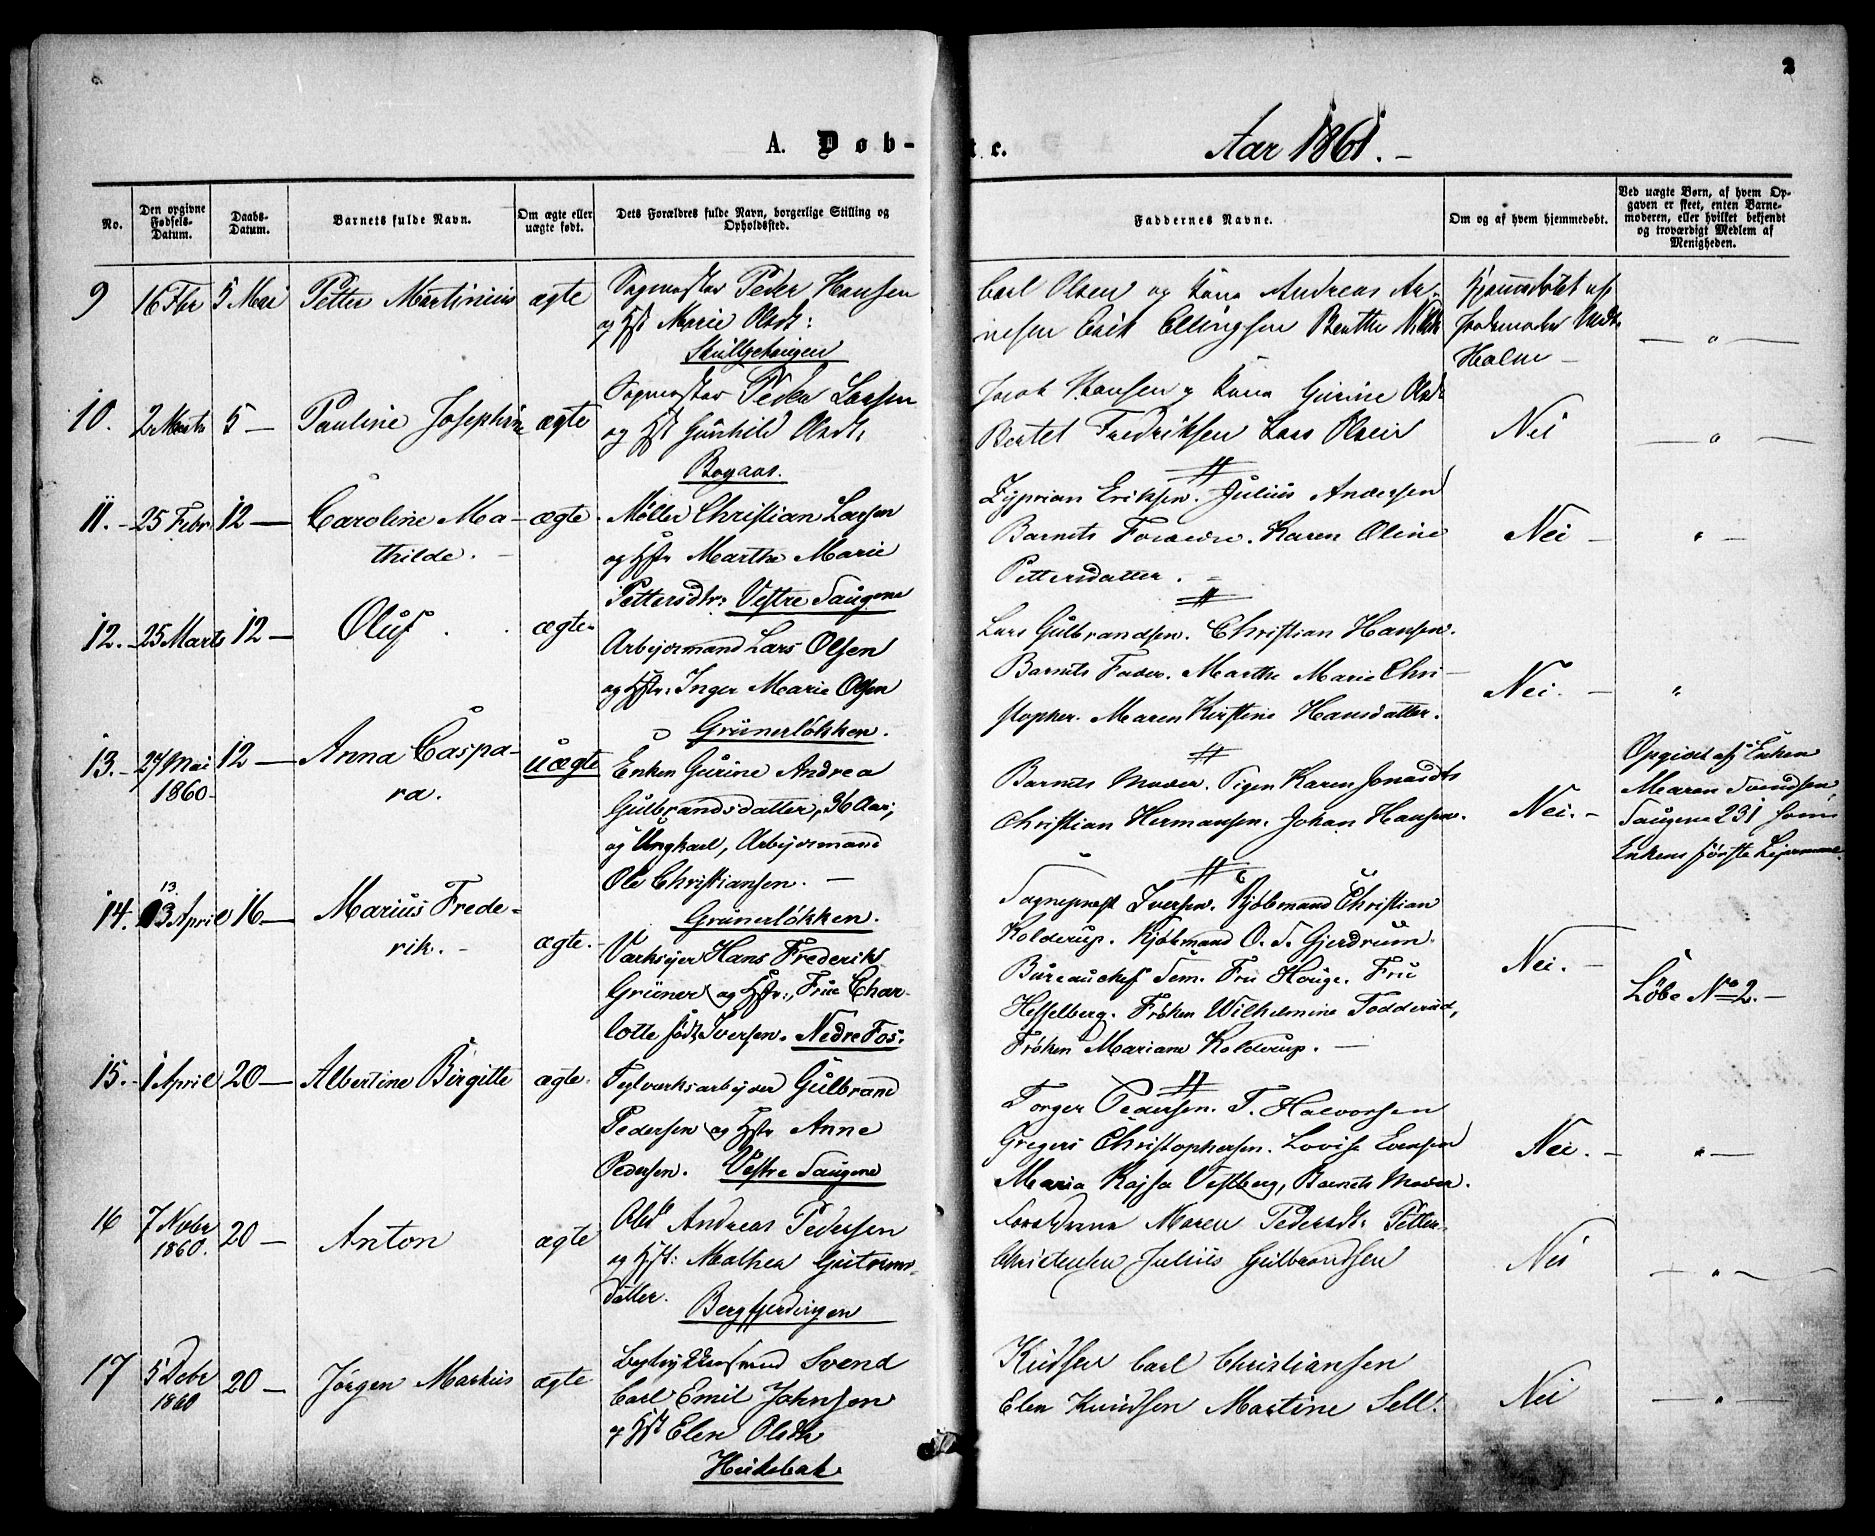 2
A. Døb-
te.
Aar 1861.-
No.
Den opgivne Fødsels-Datum.
Daabs-Datum.
Barnets fulde Navn.
Om ægte eller uægte født.
Dets Forældres fulde Navn, borgerlige Stilling og Opholdssted.
Faddernes Navne.
Om og af hvem hjemmedøbt.
Ved uægte Børn, af hvem Opgaven er skeet, enten Barnemoderen, eller hvilket bekjendt og troværdigt Medlem af Menigheden.
9 16 Fbr 5 Mai Petter Martinius ægte
Sagmester Peder Hansen
og Hst Marie Olsdt:
Carl Olsen og Kone Andreas Ar-
nesen Erik Ellingsen Berthe
Hjemmedøbt af
Jordemoder
Holm -
10. 2 Marts 5 - Pauline Josephine ægte
Sagmester Peder Larsen
og Hst Gunhild Olsdt.
Bogaas.
Jacob Hansen & Kone Gurine Olsdt
Bertel Fredriksen Lars Olsen
Nei
11.- 25 Febr 12 - Caroline Ma-
thilde.
ægte
Møller Christian Larsen
og Hstr Marthe Marie
Pettersdtr: Vestre Saugene
Zyprian Eriksen. Julius Andersen
Barnets Forældre. Karen Oline
Pettersdatter.
Nei -
12.- 25 Marts 12 - Oluf. ægte-
Arbejdsmand Lars Olsen
og Hstr: Inger Marie Olsen
Grünerløkken.
Lars Gulbrandsen. Christian Hansen.
Barnets Fader. Marthe Marie Chri-
stopher. Maren Kirstine Hansdatter.
Nei. -
13.- 27 Mai 1860- 12 - Anna Caspa-
ra.
uægte
Enken Gurine Andrea
Gulbrandsdatter, 36 Aar,
og Ungkarl, Arbejdsmand
Ole Christiansen. -
Grünerløkken.
Barnets Moder. Pigen Karen Jonasdtr
Christian Hermansen. Johan Hansen.
Nei. -
Opgivet af Enken
Maren Svendsen,
Saugene 231
Enkens første Lejermaal.
14. 13 April 16- Marius Frede-
rik. -
ægte.
Værksejer Hans Frederik
Grüner og Hstr., Frue Char-
lotte født Iversen. Nedre Fos.
Sognepræst Iversen. Kjøbmand Christian
Kolderup. Kjøbmand O. S. Gjerdrum.
Bureauchef Fru Houge. Fru
Hesselberg. Frøken Wilhelmine Todderud,
Frøken Mariane Kolderup. -
Nei. -
Løbe No 2.-
15.- 1 April 20- Albertine Birgitte ægte.
Teglværksarbejder Gulbrand
Pedersen og Hstr Anne
Pedersen. Vestre Saugene
Torger Pedersen. T. Halvorsen
Gregers Christophersen. Lovise Evensen
Maria Kajsa Vestberg, Barnets Moder.
Nei. -
16 7 Novbr 1860. 20 - Anton ægte
Andreas Pedersen
og Hst: Mathea Guttorms-
datter.
Bergfjerdingen
Forældrene Maren Pedersdt: Petter
Christensen Julius Gulbrandsen
Nei
17 5 Debr 1860 20 - Jørgen Markus ægte
Svend
Carl Emil Johnsen
& Hst Elen Olsdtr
Knudsen Carl Christiansen
Elen Knudsen Martine Sell.
Nei